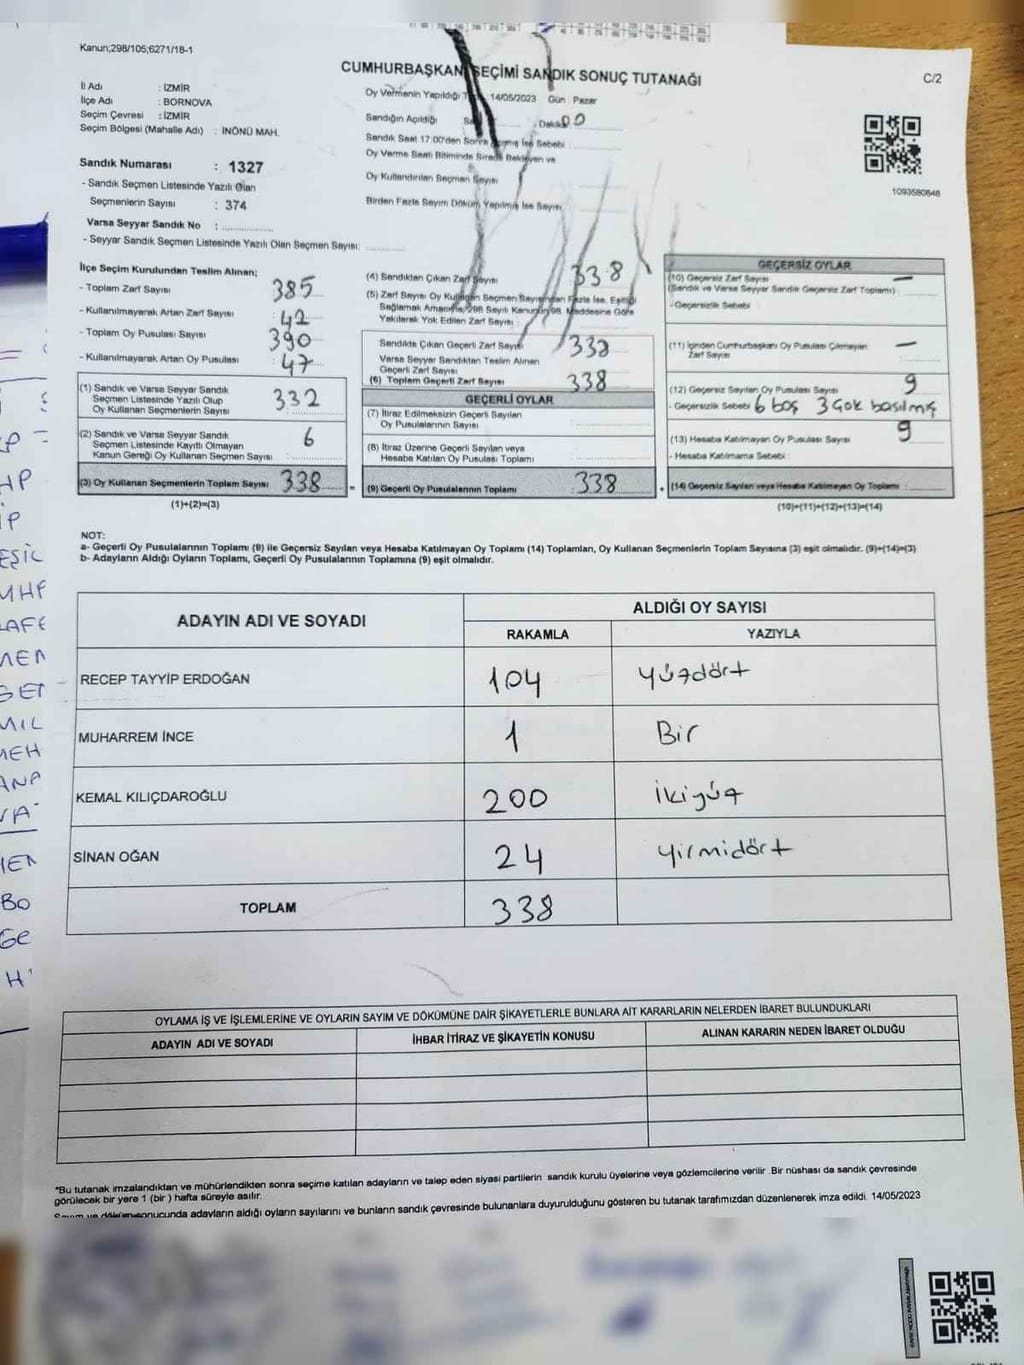 Kanun;298/105;6271/18-1
CUMHURBAŞKANI SEÇİMİ SANDIK SONUÇ TUTANAĞI
C/2
İl Adı : İZMİR
İlçe Adı : BORNOVA
Seçim Çevresi : İZMİR
Seçim Bölgesi (Mahalle Adı) : İNÖNÜ MAH.
Sandık Numarası : 1327
- Sandık Seçmen Listesinde Yazılı Olan
Seçmenlerin Sayısı : 374
Varsa Seyyar Sandık No :
- Seyyar Sandık Seçmen Listesinde Yazılı Olan Seçmen Sayısı:
Oy Vermenin Yapıldığı :14/05/2023 Gün : Pazar
Sandığın Açıldığı Dakika 00
Sandık Saat 17:00'den Sonra Açılmış İse Sebebi :
Oy Verme Saati Bitiminde Sırada Bekleyen ve
Oy Kullandırılan Seçmen Sayısı
Birden Fazla Sayım Döküm Yapılmış İse Sayısı
1093580848
İlçe Seçim Kurulundan Teslim Alınan;
- Toplam Zarf Sayısı : 385
- Kullanılmayarak Artan Zarf Sayısı : 42
- Toplam Oy Pusulası Sayısı : 390
- Kullanılmayarak Artan Oy Pusulası : 47
(1) Sandık ve Varsa Seyyar Sandık
Seçmen Listesinde Yazılı Olup
Oy Kullanan Seçmenlerin Sayısı : 332
(2) Sandık ve Varsa Seyyar Sandık
Seçmen Listesinde Kayıtlı Olmayan
Kanun Gereği Oy Kullanan Seçmen Sayısı : 6
(3) Oy Kullanan Seçmenlerin Toplam Sayısı : 338
(1)+(2)=(3)
(4) Sandıktan Çıkan Zarf Sayısı 338
(5) Zarf Sayısı Oy Kullanan Seçmen Sayısından Fazla İse, Eşitliği
Sağlamak Amacıyla, 298 Sayılı Kanunun 98. Maddesine Göre
Yakılarak Yok Edilen Zarf Sayısı :
Sandıkta Çıkan Geçerli Zarf Sayısı : 338
Varsa Seyyar Sandıktan Teslim Alınan
Geçerli Zarf Sayısı
(6) Toplam Geçerli Zarf Sayısı : 338
GEÇERLİ OYLAR
(7) İtiraz Edilmeksizin Geçerli Sayılan
Oy Pusulalarının Sayısı :
(8) İtiraz Üzerine Geçerli Sayılan veya
Hesaba Katılan Oy Pusulası Toplamı :
(9) Geçerli Oy Pusulalarının Toplamı : 338
GEÇERSİZ OYLAR
(10) Geçersiz Zarf Sayısı —
(Sandık ve Varsa Seyyar Sandık Geçersiz Zarf Toplamı) :
- Geçersizlik Sebebi :
(11) İçinden Cumhurbaşkanı Oy Pusulası Çıkmayan —
Zarf Sayısı
(12) Geçersiz Sayılan Oy Pusulası Sayısı : 9
- Geçersizlik Sebebi 6 boş 3 çok basılmış
(13) Hesaba Katılmayan Oy Pusulası Sayısı : 9
- Hesaba Katılmama Sebebi :
(14) Geçersiz Sayılan veya Hesaba Katılmayan Oy Toplamı :
(10)+(11)+(12)+(13)=(14)
NOT:
a- Geçerli Oy Pusulalarının Toplamı (9) ile Geçersiz Sayılan veya Hesaba Katılmayan Oy Toplamı (14) Toplamları, Oy Kullanan Seçmenlerin Toplam Sayısına (3) eşit olmalıdır. (9)+(14)=(3)
b- Adayların Aldığı Oyların Toplamı, Geçerli Oy Pusulalarının Toplamına (9) eşit olmalıdır.
ADAYIN ADI VE SOYADI ALDIĞI OY SAYISI
RAKAMLA YAZIYLA
RECEP TAYYİP ERDOĞAN 104 Yüzdört
MUHARREM İNCE 1 Bir
KEMAL KILIÇDAROĞLU 200 İkiyüz
SİNAN OĞAN 24 Yirmidört
TOPLAM 338
OYLAMA İŞ VE İŞLEMLERİNE VE OYLARIN SAYIM VE DÖKÜMÜNE DAİR ŞİKAYETLERLE BUNLARA AİT KARARLARIN NELERDEN İBARET BULUNDUKLARI
ADAYIN ADI VE SOYADI İHBAR İTİRAZ VE ŞİKAYETİN KONUSU ALINAN KARARIN NEDEN İBARET OLDUĞU
*Bu tutanak imzalandıktan ve mühürlendikten sonra seçime katılan adayların ve talep eden siyasi partilerin sandık kurulu üyelerine veya gözlemcilerine verilir. Bir nüshası da sandık çevresinde
görülecek bir yere 1 (bir ) hafta süreyle asılır.
Sayım ve döküm sonucunda adayların aldığı oyların sayılarını ve bunların sandık çevresinde bulunanlara duyurulduğunu gösteren bu tutanak tarafımızdan düzenlenerek imza edildi. 14/05/2023